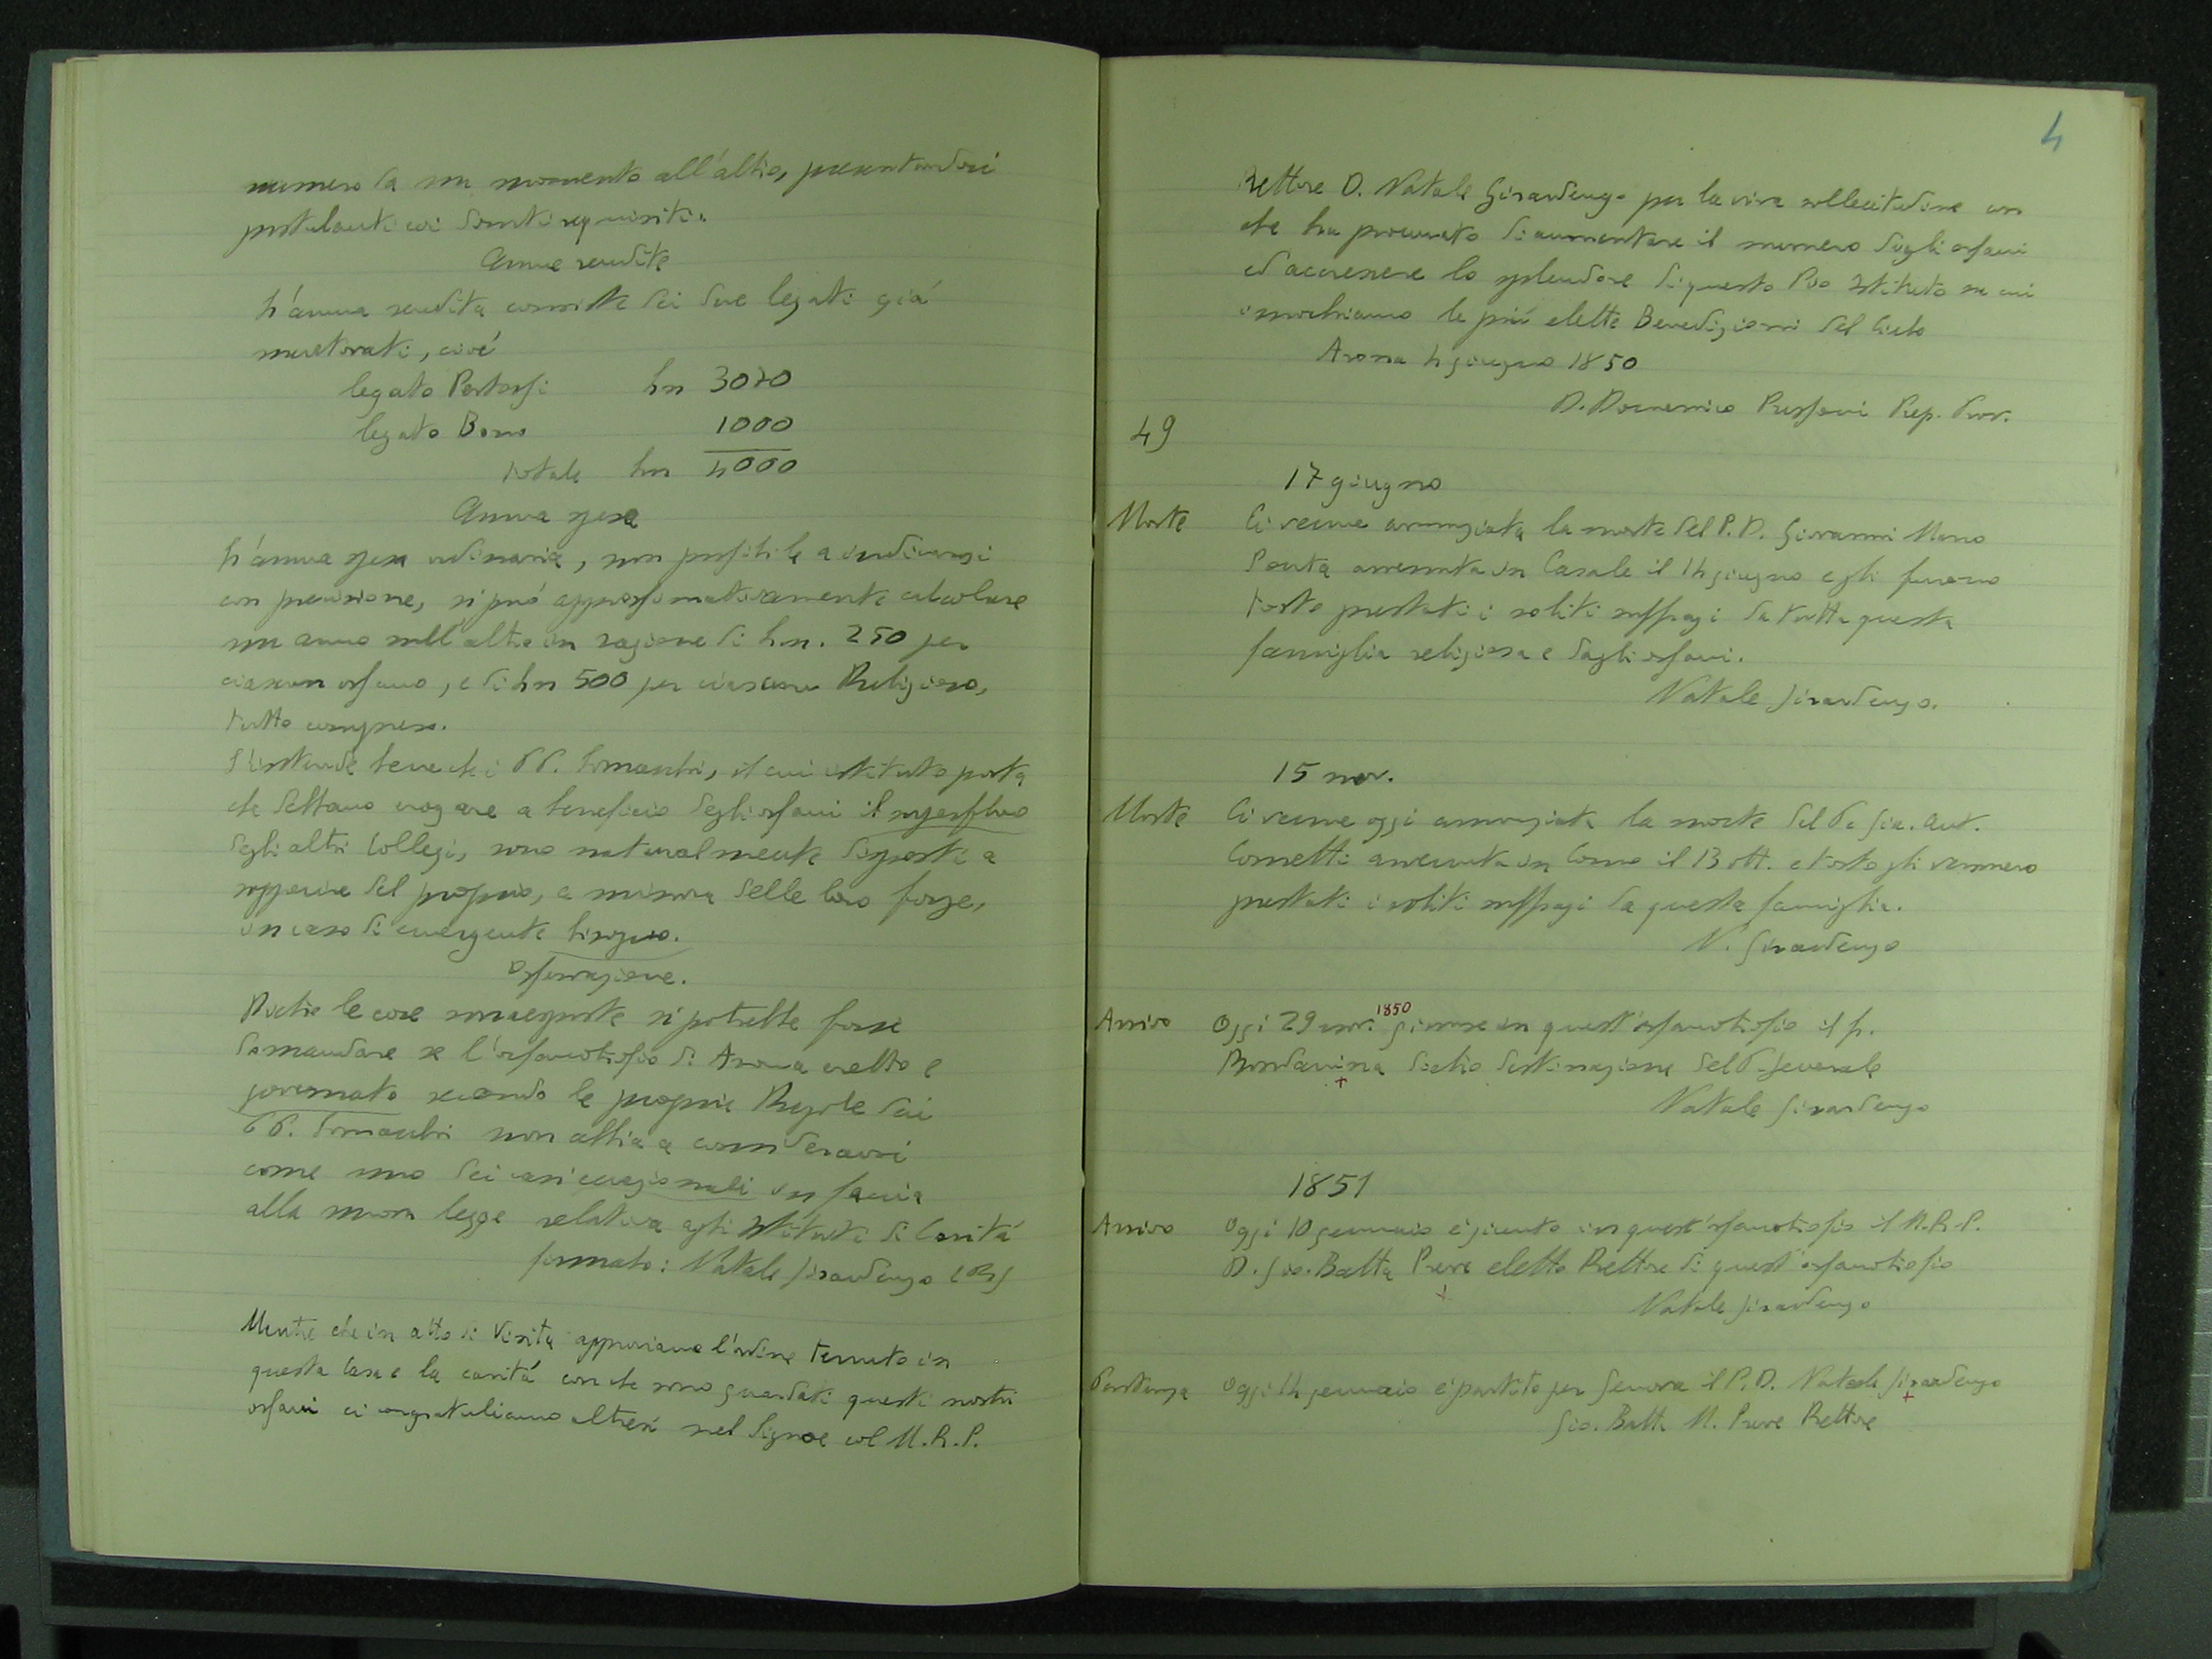 numero da un momento all'altro, presentandosi
postulanti coi dovuti requisiti.
Annue rendite
L'annua rendita consiste dei due legati già
mentovati, cioé
legato Pertossi Ln 3000
legato Bono 1000
totale Ln 4000
Annua spesa
L'annua spesa ordinaria, non possibile a indicarsi
con precisione, si può approssimativamente calcolare
un anno sull'altro in ragione di L.n. 250 per
ciascun orfano, e di Ln 500 per ciascun Religioso,
tutto compreso.
S'intende bene che i PP. Somaschi, il cui istituto porta
che debbano erogare a beneficio degli orfani il superfluo
degli altri Collegi, sono naturalmente disposti a
sopperire del proprio, a misura delle loro forze,
in caso di emergente bisogno.
Osservazione.
Dietro le cose sovraesposte si potrebbe forse
domandare se l'orfanotrofio di Arona eretto e
governato secondo le proprie Regole dei
PP. Somaschi non abbia a considerarsi
come uno dei casi eccezionali in faccia
alla nuova legge relativa agli Istituti di Carità
firmato: Natale Girardengo CRS
Mentre che in atto di Visita approviamo l'ordine tenuto in
questa Casa e la carità con che sono guardati questi nostri
orfani ci congratuliamo altresì nel Signore col M.R.P.
4
Rettore D. Natale Girardengo per la viva sollecitudine con
che ha procurato di aumentare il numero degli orfani
ed accrescere lo splendore di questo Pio Istituto su cui
invochiamo le più elette Benedizioni del Cielo
Arona 4 giugno 1850
D. Domenico Pressoni Prep. Prov.
49
17 giugno
Morte Ci venne annunziata la morte del P.D. Giovanni Maria
Ponta avvenuta in Casale il 14 giugno e gli furono
tosto prestati i soliti suffragi da tutta questa
famiglia religiosa e dagli orfani.
Natale Girardengo.
15 nov.
Morte Ci venne oggi annunziata la morte del P. Gio. Ant.
Cometti avvenuta in Como il 13 ott. e tosto gli vennero
prestati i soliti suffragi da questa famiglia.
N. Girardengo
Arrivo Oggi 29 nov. 1850 giunse in quest'orfanotrofio il fr.
Mondavina dietro destinazione del P. Generale
Natale Girardengo
1851
Arrivo Oggi 10 gennaio è giunto in quest'orfanotrofio il M.R.P.
D. Gio. Batta Preve eletto Rettore di quest'orfanotrofio
Natale Girardengo
Partenza Oggi 14 gennaio è partito per Genova il P.D. Natale Girardengo
Gio. Batta M. Preve Rettore